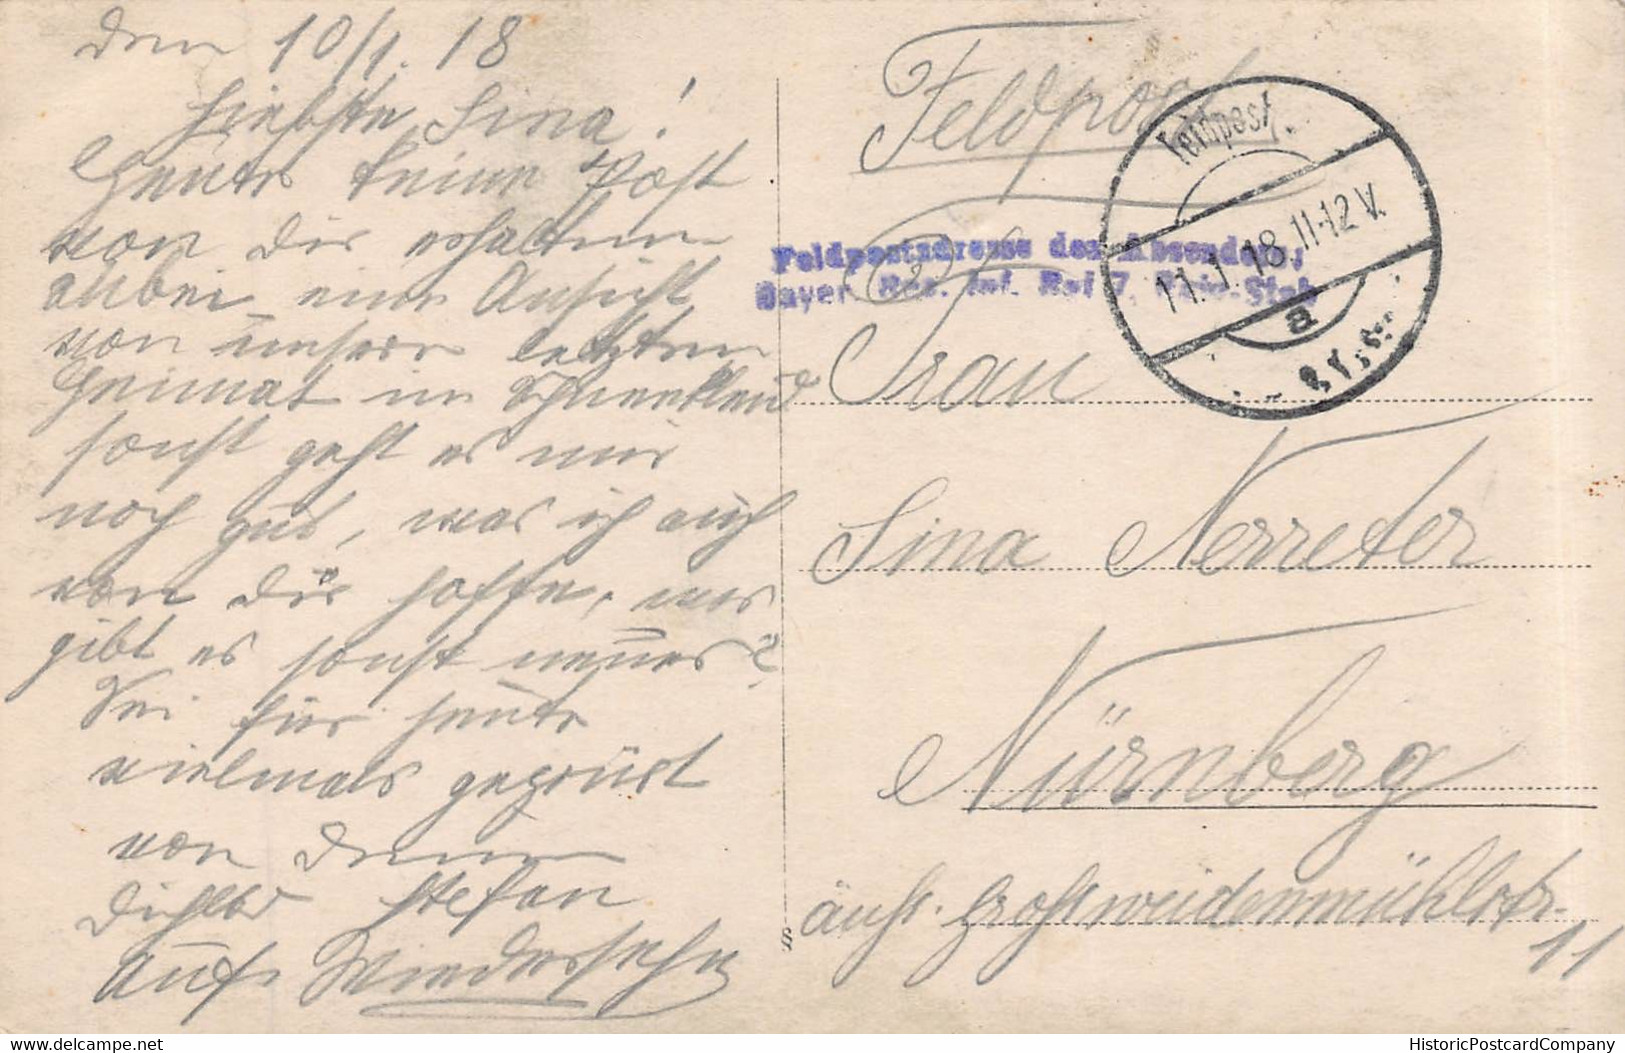 den 10/1. 18
Liebste Sina!
Heute keine Post
von Dir erhalten
anbei eine Ansicht
von unserer letzten
Heimat im
sonst geht es mir
noch gut, was ich auch
von Dir hoffe, was
gibt es sonst neues?
Sei für heute
vielmals gegrüst
von Deinem
Stefan
Auf Wiedersehn
Feldpost
Feldpostadresse des Absenders:
Bayer. Res. Inf. 7,
Feldpost
11.1.18. 11-12 V.
a
Frau
Sina Nerreter
Nürnberg
äuß. Großweidenmühlstr.
11
§
Visit our Store on delcampe.net
HistoricPostcardCompany